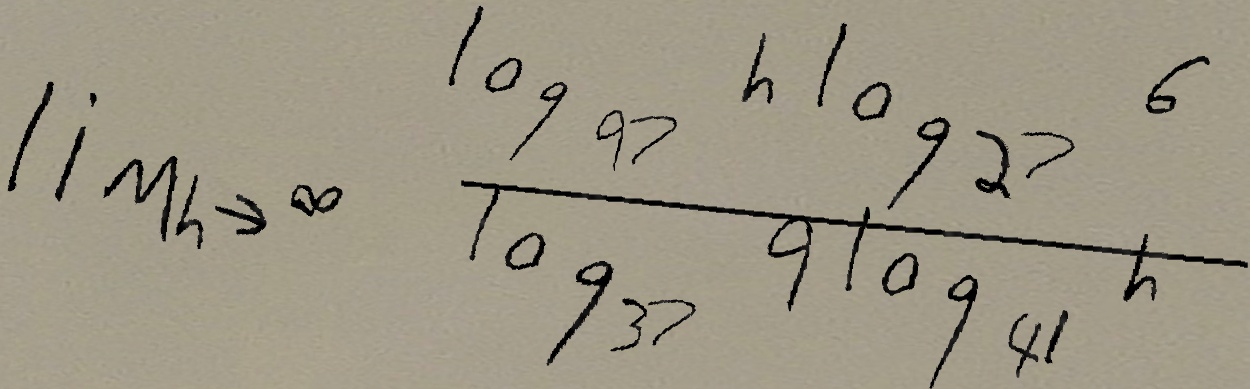 \lim_{h \to \infty} \frac{\log_{97} h \log_{27} 6}{\log_{37} 9 \log_{41} h}